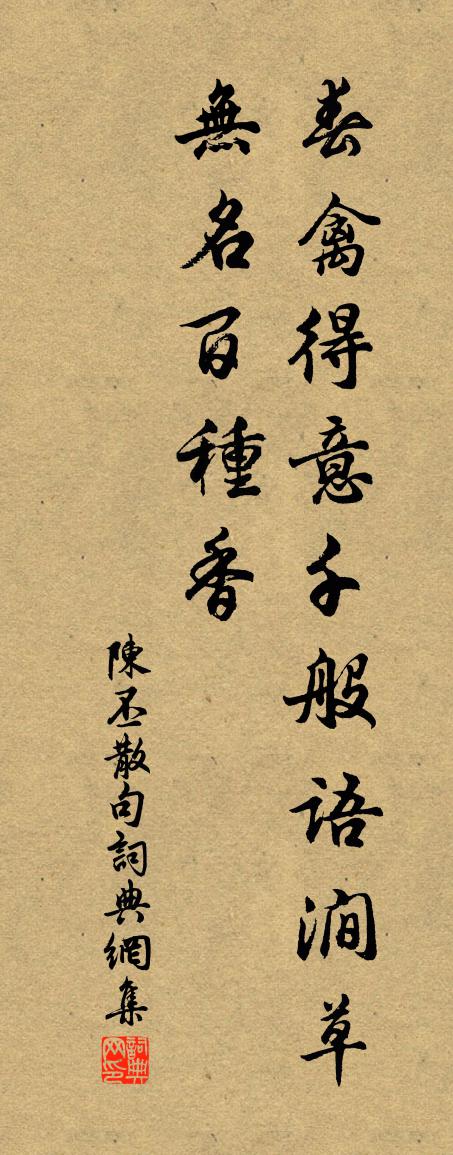 春禽得意千般語澗草
無名百種香
陳丕散句詞典網集
詞典网印